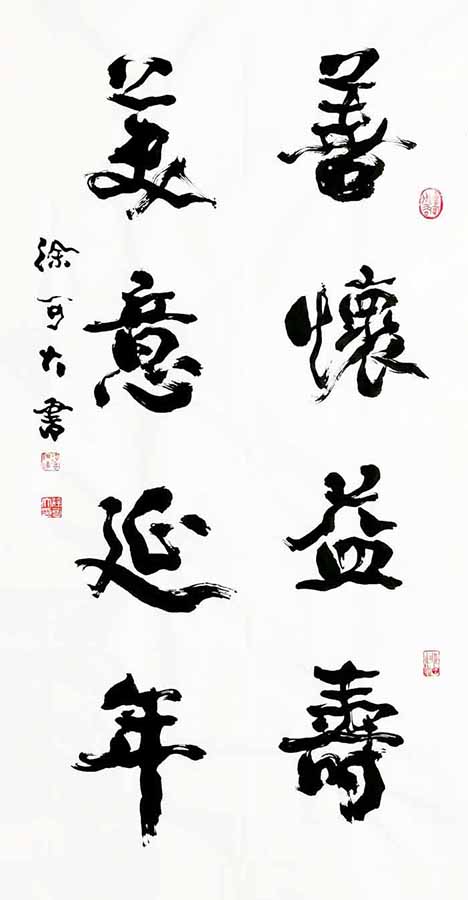 善懷益壽
美意延年
徐可大書